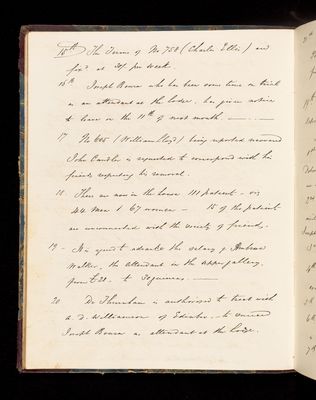 15th The Terms of No 758 (Charles Ellis) are
fixd at 20/ per week.
16th Joseph Bowen who has been some time on trial
as an attendant at the Lodge, has given notice
to leave on the 11th of next month.
17 No 605 (William Lloyd) being reported recovered
John Candler is requested to correspond with his
friends respecting his removal.
18. There are now in the house 111 patients - viz
44 Men & 67 women - 15 of the patients
are unconnected with the society of friends.
19 - It is agreed to advance the salary of
Walker, the attendant in the upper gallery,
from £20. to 25 guineas.
20 Dr Thurnam is authorised to treat with
A. D. Williamson of to succeed
Joseph Bowen as attendant at the Lodge.